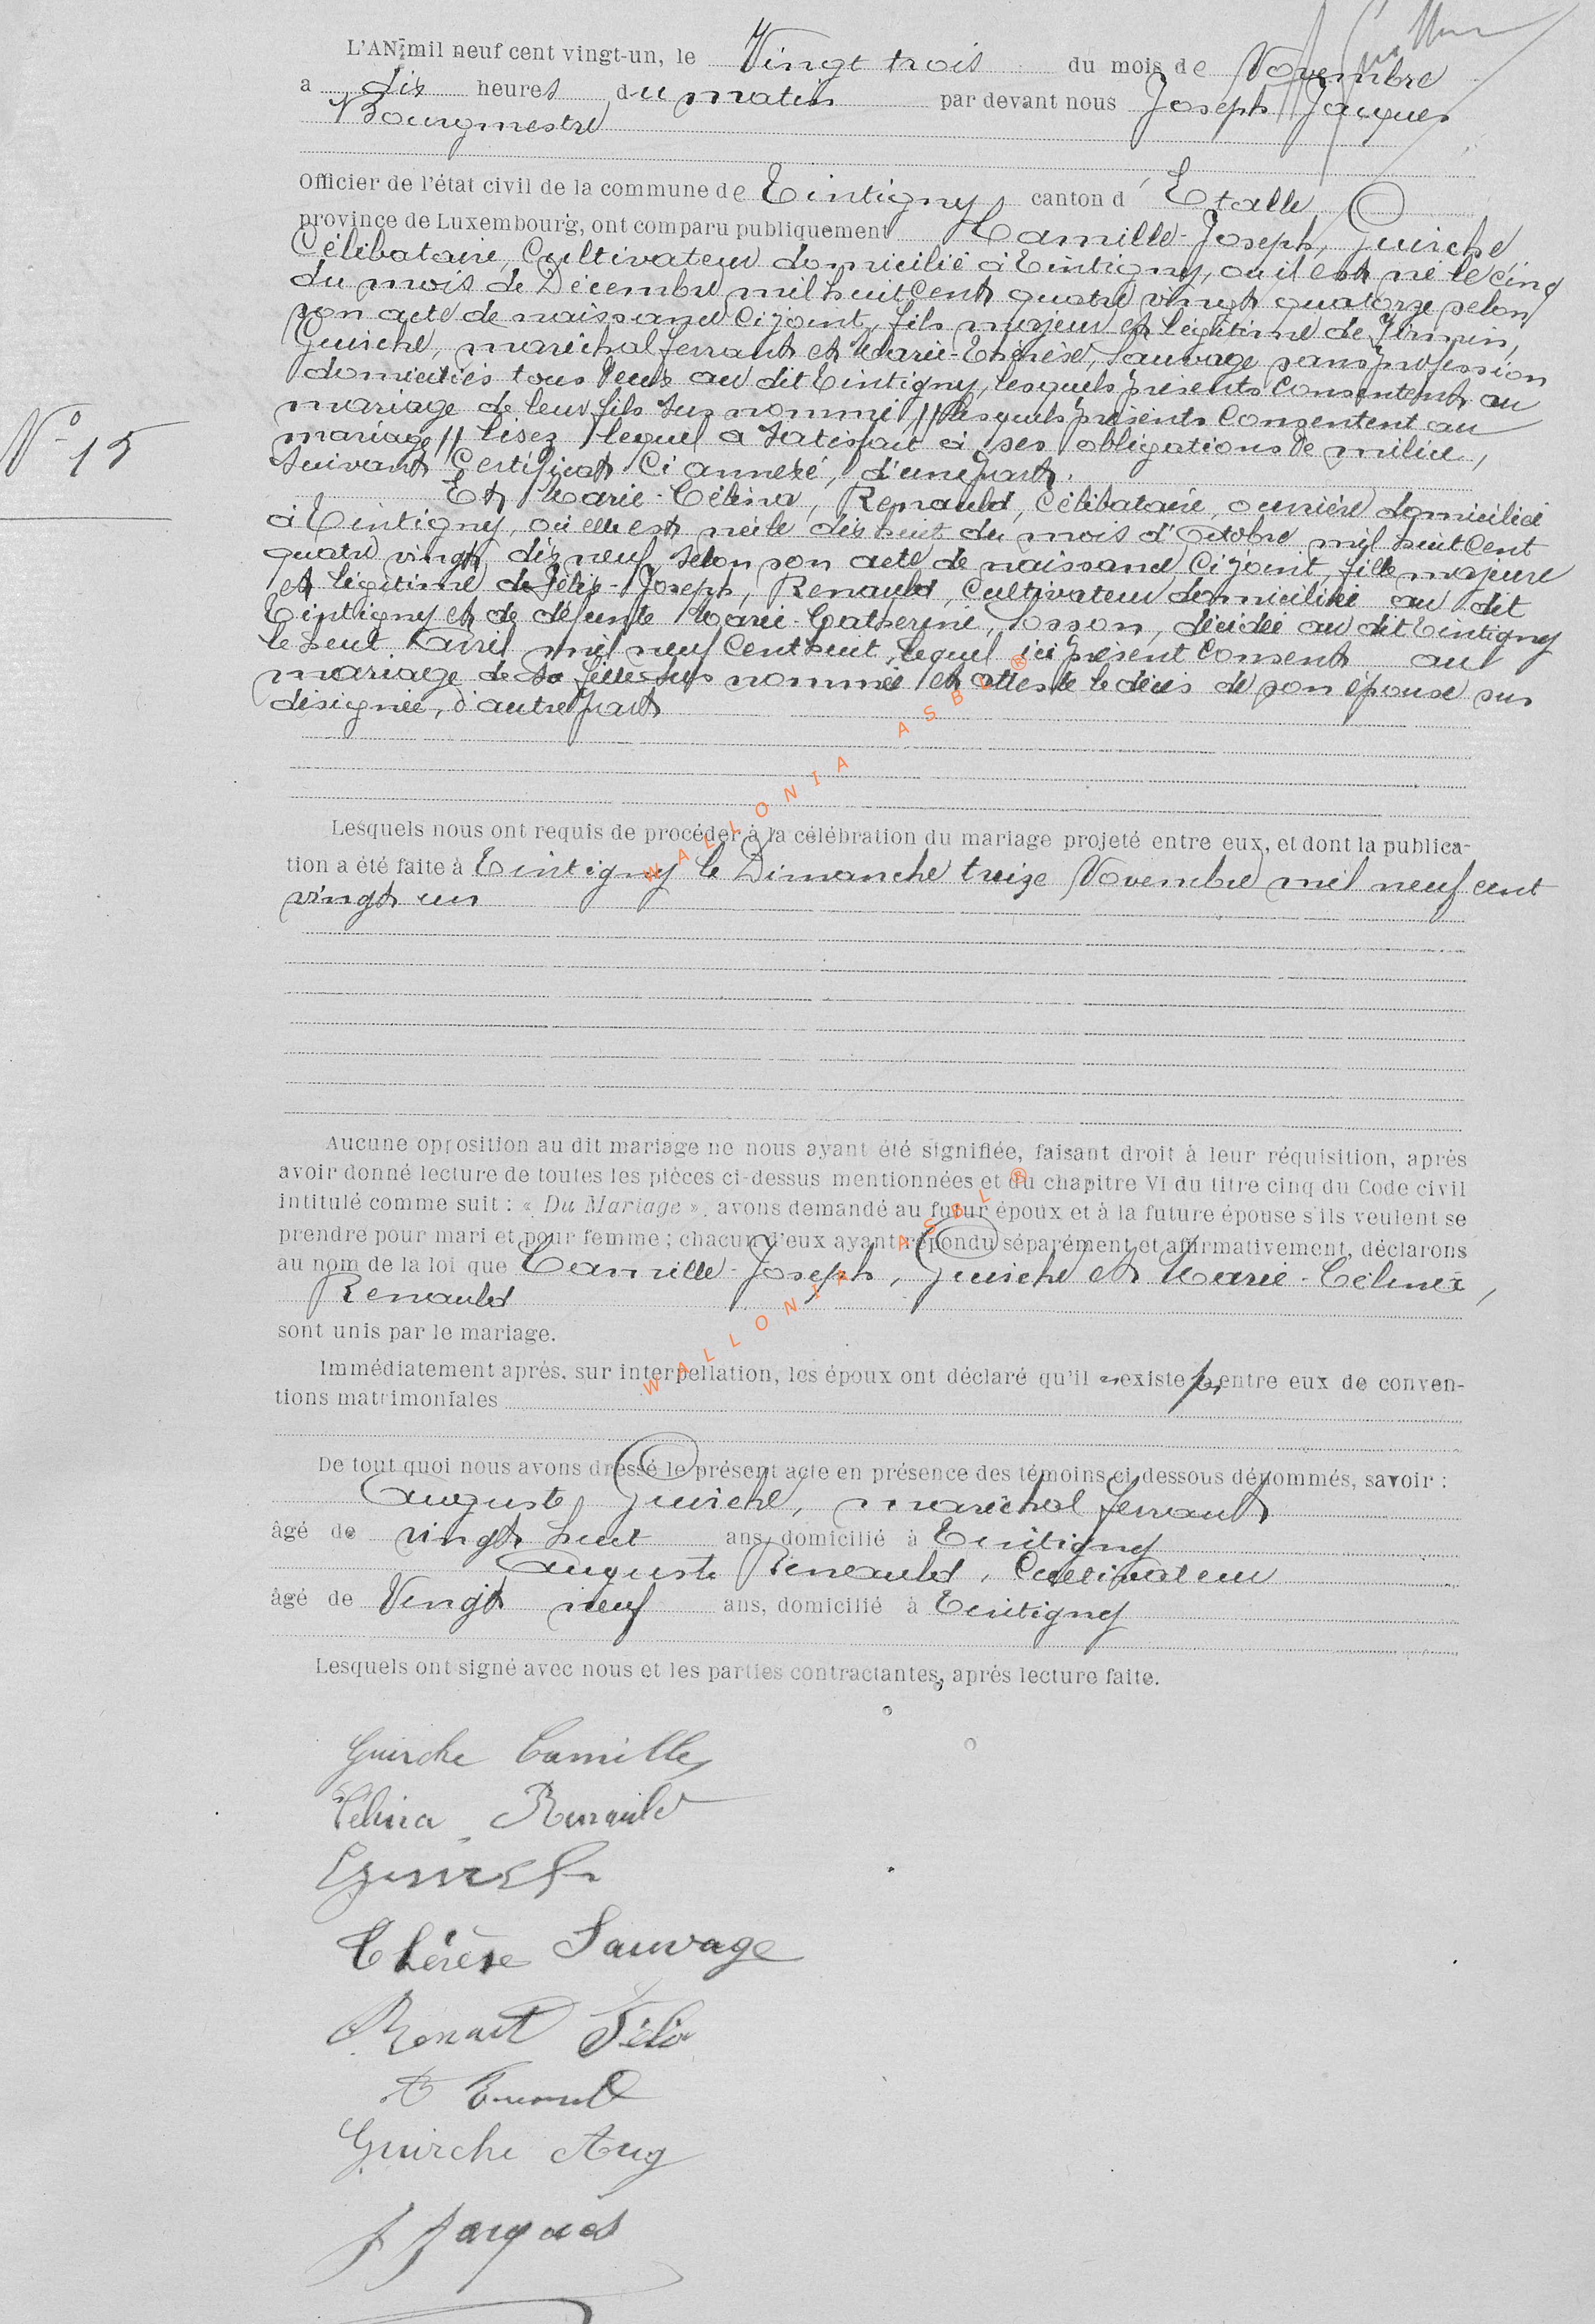 L'AN mil neuf cent vingt-un, le Vingt trois du mois de Novembre
a dix heures du matin par devant nous Joseph Jacques
Bourgmestre
Officier de l'état civil de la commune de Tintigny canton d'Etalle
province de Luxembourg, ont comparu publiquement Camille-Joseph, Guirche,
Célibataire, Cultivateur domicilié à Tintigny, où il est né le cinq
du mois de Décembre mil huit cent quatre vingt quatorze selon
son acte de naissance ci joint, fils majeur et légitime de Firmin,
Guirche, maréchal ferrant et Marie-Thérèse, Sauvage sans profession
domiciliés tous deux au dit Tintigny, lesquels présents consentent au
mariage de leur fils sus nommé // lesquels présents consentent au
N° 15
mariage // lisez lequel a satisfait à ses obligations de milice,
suivant certificat ci annexé, d'une part.
Et Marie-Célina, Renauld, célibataire, ouvrière domiciliée
à Tintigny, où elle est née le dix huit du mois d'Octobre mil huit cent
quatre vingt dix neuf, selon son acte de naissance ci joint, fille majeure
et légitime de Félix-Joseph, Renauld, cultivateur domicilié au dit
Tintigny et de défunte Marie-Catherine, Rosson, décédée au dit Tintigny
le huit Avril mil neuf cent huit, lequel ici présent consent au
mariage de sa fille sus nommée et atteste le décès de son épouse sus
désignée, d'autre part
Lesquels nous ont requis de procéder à la célébration du mariage projeté entre eux, et dont la publica-
tion a été faite à Tintigny le Dimanche treize Novembre mil neuf cent
vingt un
Aucune opposition au dit mariage ne nous ayant été signifiée, faisant droit à leur réquisition, après
avoir donné lecture de toutes les pièces ci-dessus mentionnées et du chapitre VI du titre cinq du Code civil
intitulé comme suit : « Du Mariage », avons demandé au futur époux et à la future épouse s'ils veulent se
prendre pour mari et pour femme ; chacun d'eux ayant répondu séparément et affirmativement, déclarons
au nom de la loi que Camille-Joseph, Guirche et Marie-Célina,
Renauld
sont unis par le mariage.
Immédiatement après, sur interpellation, les époux ont déclaré qu'il n'existe pas entre eux de conven-
tions matrimoniales
De tout quoi nous avons dressé le présent acte en présence des témoins ci dessous dénommés, savoir :
Auguste, Guirche, maréchal ferrant
âgé de vingt huit ans, domicilié à Tintigny
Auguste Renauld, Cultivateur
âgé de Vingt neuf ans, domicilié à Tintigny
Lesquels ont signé avec nous et les parties contractantes, après lecture faite.
Guirche Camille
Célina Renauld
Guirche
Thérèse Sauvage
Renault Félix
Guirche Aug
J Jacques
WALLONIA ASBL ®
WALLONIA ASBL ®